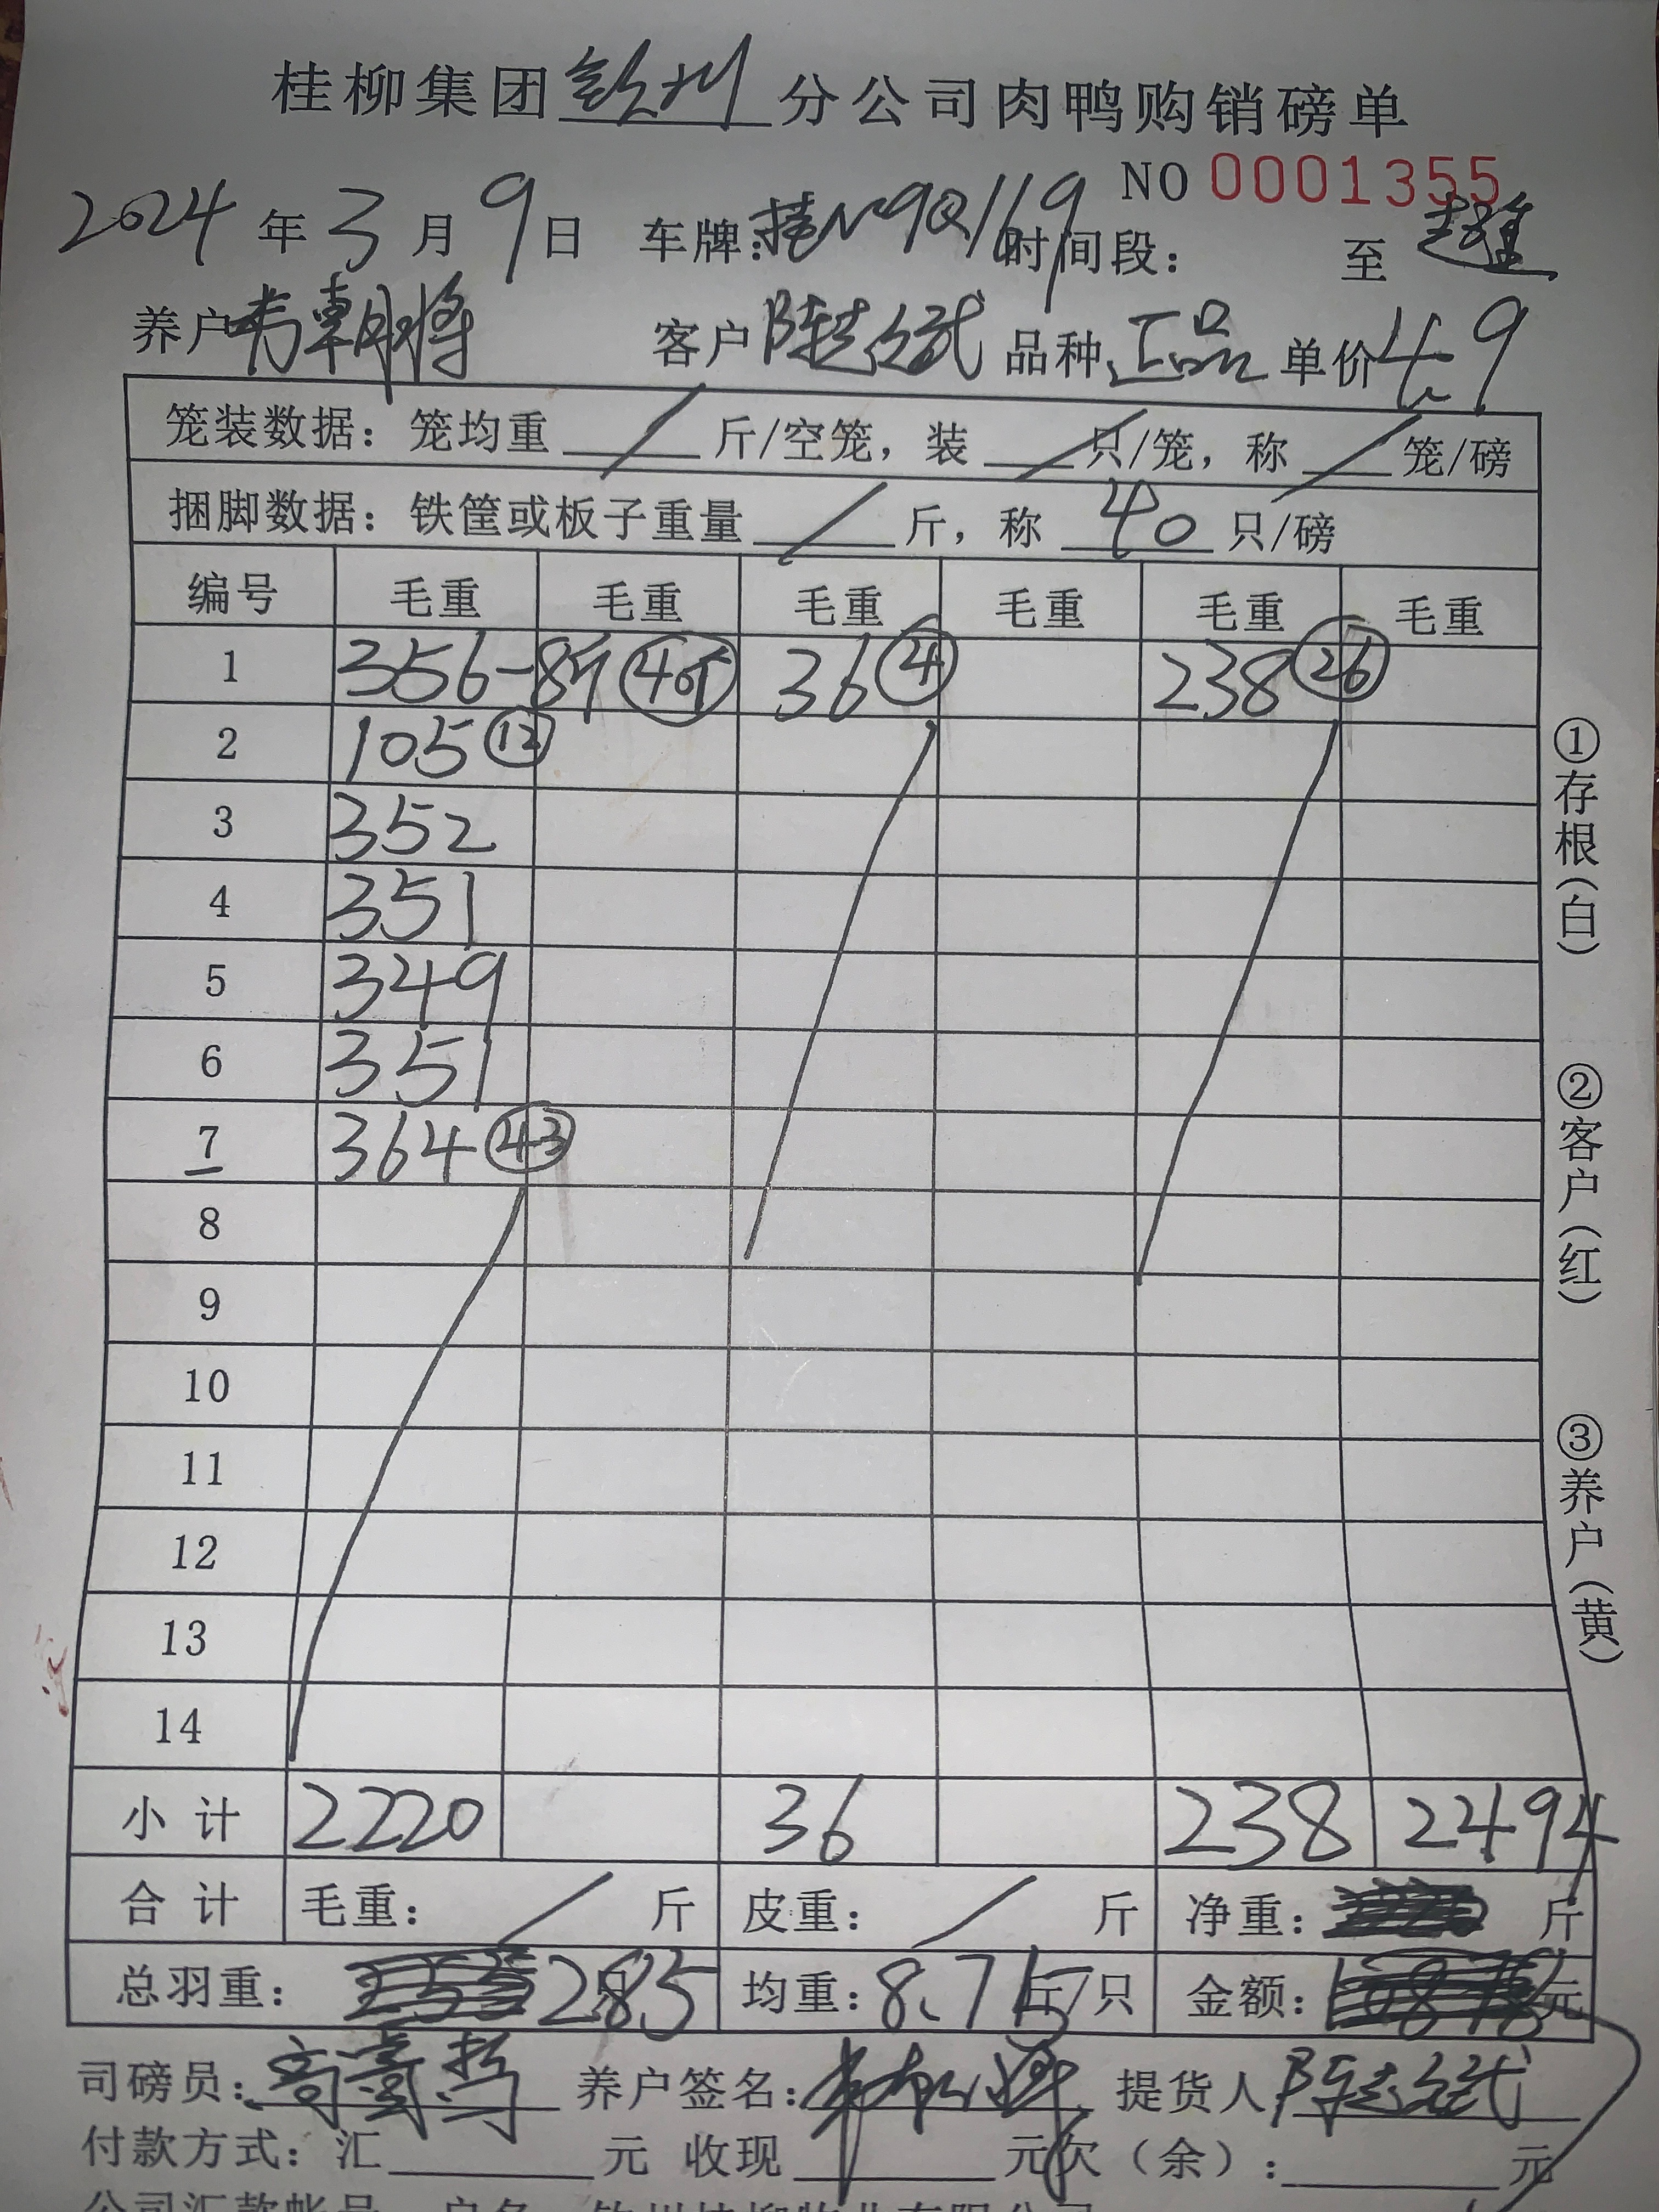 桂柳集团钦州分公司肉鸭购销磅单
NO 0001355
2024年3月9日 车牌:桂N9Q169 时间段: 至
养户韦朝将 客户陈志斌 品种正品 单价4.9
笼装数据: 笼均重 / 斤/空笼, 装 / 只/笼, 称 / 笼/磅
捆脚数据: 铁筐或板子重量 / 斤, 称 40 只/磅
编号 毛重 毛重 毛重 毛重 毛重 毛重
1 356-8斤 36 ④ 238 ㉖
2 105 ⑫
3 352
4 351
5 349
6 351
7 364 ㊸
8
9
10
11
12
13
14
小计 2220 36 238 2494
合计 毛重: / 斤 皮重: / 斤 净重: 斤
总羽重: 285 均重: 8.75斤/只 金额: 元
司磅员: 养户签名: 提货人陈志斌
付款方式: 汇 元 收现 元 欠(余): 元
①存根(白)
②客户(红)
③养户(黄)